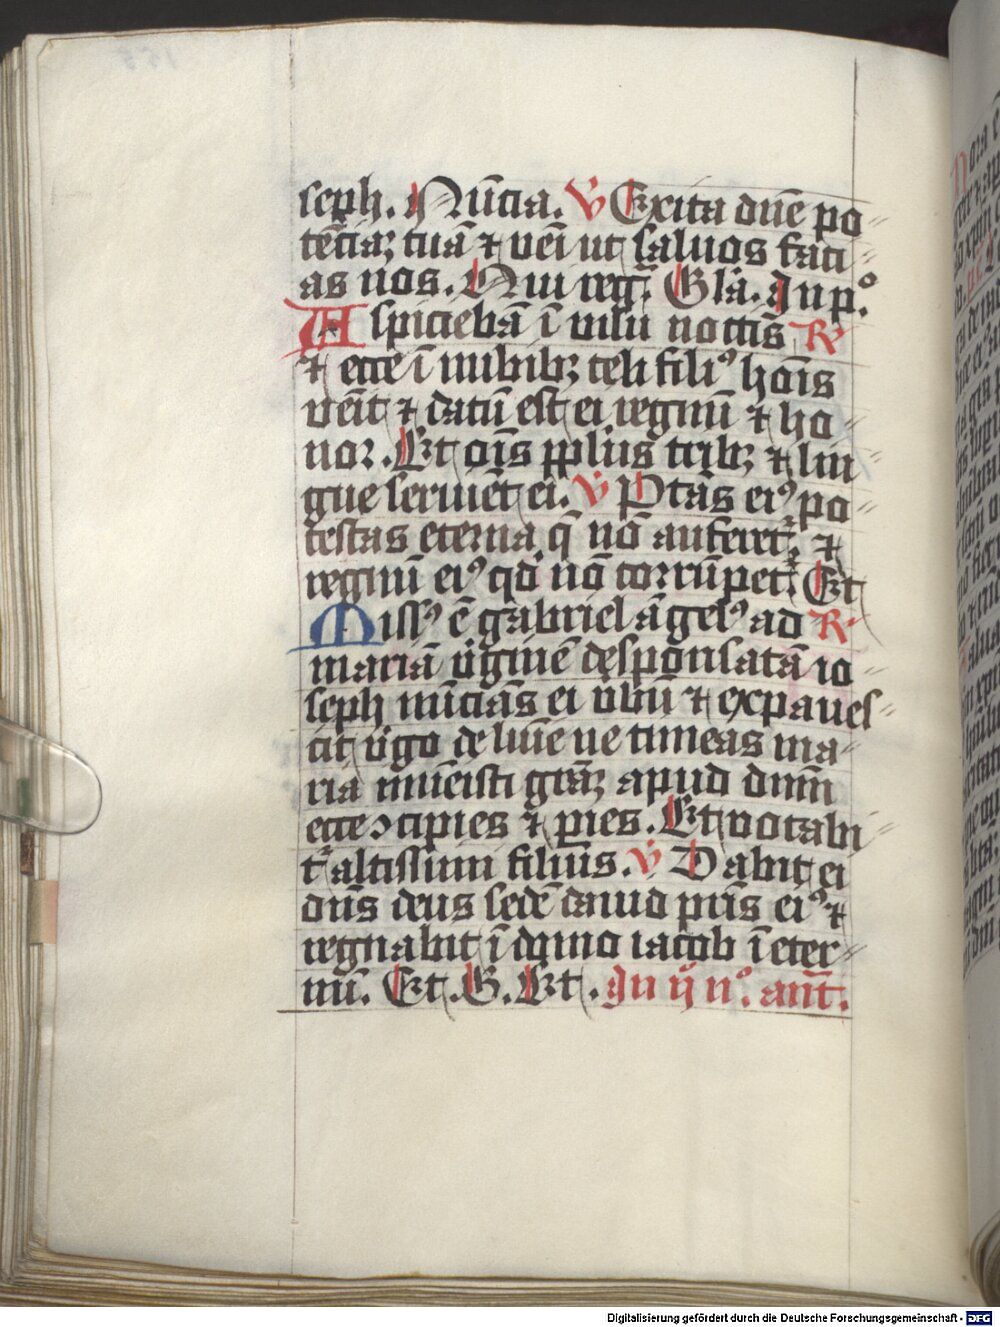 seph. Nūcia. V̄ Excita dn̄e po
tēciaꝫ tuā ⁊ vēi ut saluos faci
as nos. Nui reg. Gła. In pº.
Aspiciebā ī uisu noctis R̄
⁊ ecce ī nubibꝫ celi filiꝰ hōis
vēit ⁊ datū est ei regnū ⁊ ho
nor. Et oīs pplus tribꝫ ⁊ lin
gue seruiēt ei. V̄ Ptās eiꝰ po
testas eterna q̄ nō auferet᷑. ⁊
regnū eiꝰ qd̄ nō corrūpet᷑. Et
Missꝰ ē gabriel āgelꝰ ad R̄
mariā v̓ginē desponsatā io
seph nūciās ei v̓bū ⁊ expaues
cit v̓go de lum̄e ne timeas ma
ria inuēisti grāꝫ apud dnm̄
ecce ꝯcipies ⁊ paries. Et vocabi
t᷑ altissimi filius. V̄ Dabit ei
dn̄s deus sedē dauid pr̄is eiꝰ ⁊
regnabit ī domo iacob ī eter
nū. Et. G. Et. In ij nº. ant̄.
Digitalisierung gefördert durch die Deutsche Forschungsgemeinschaft - DFG